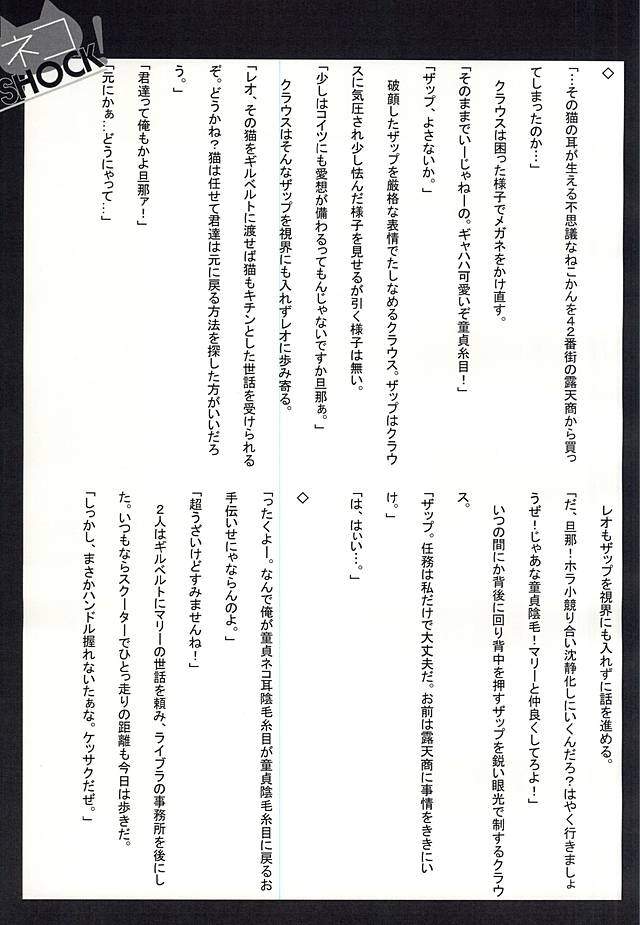 ネコ
SHOCK!
◇
「…その猫の耳が生える不思議なねこかんを42番街の露天商から買っ
てしまったのか…」
クラウスは困った様子でメガネをかけ直す。
「そのままでいーじゃねーの。ギャハハ可愛いぞ童貞糸目！」
「ザップ、よさないか。」
破顔したザップを厳格な表情でたしなめるクラウス。ザップはクラウ
スに気圧され少し怯んだ様子を見せるが引く様子は無い。
「少しはコイツにも愛想が備わるってもんじゃないですか旦那ぁ。」
クラウスはそんなザップを視界にも入れずレオに歩み寄る。
「レオ、その猫をギルベルトに渡せば猫もキチンとした世話を受けられる
ぞ。どうかね？猫は任せて君達は元に戻る方法を探した方がいいだろ
う。」
「君達って俺もかよ旦那ァ！」
「元にかぁ…どうにゃって…」
レオもザップを視界にも入れずに話を進める。
「だ、旦那！ホラ小競り合い沈静化しにいくんだろ？はやく行きましょ
うぜ！じゃあな童貞陰毛！マリーと仲良くしてろよ！」
いつの間にか背後に回り背中を押すザップを鋭い眼光で制するクラウ
ス。
「ザップ。任務は私だけで大丈夫だ。お前は露天商に事情をききにい
け。」
「は、はぃい…。」
◇
「ったくよー。なんで俺が童貞ネコ耳陰毛糸目が童貞陰毛糸目に戻るお
手伝いせにゃならんのよ。」
「超うざいけどすみませんね！」
2人はギルベルトにマリーの世話を頼み、ライブラの事務所を後にし
た。いつもならスクーターでひとっ走りの距離も今日は歩きだ。
「しっかし、まさかハンドル握れないたぁな。ケッサクだぜ。」